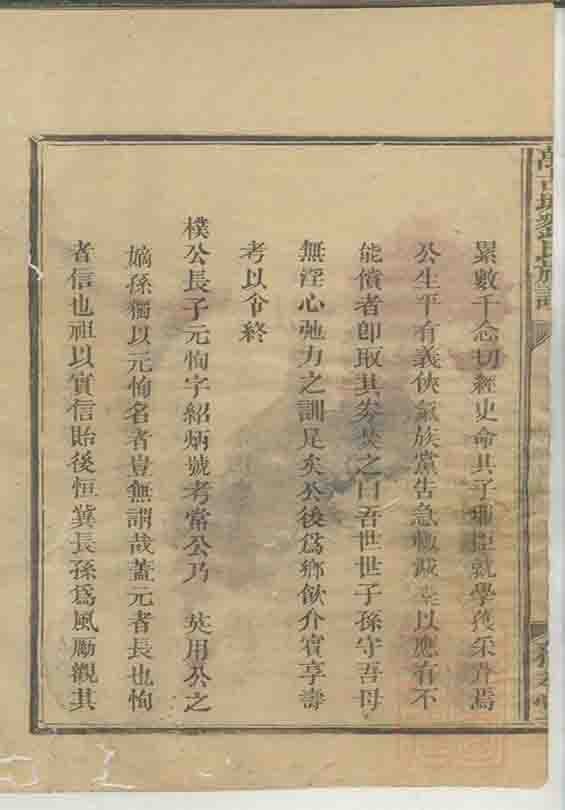 氏族譜
累數千念切經史命其子 就學獲采芹焉
公生平有義俠氣族黨告急輒減 以應有不
能償者卽取其券焚之曰吾世世子孫守吾母
無淫心弛力之訓足矣公後爲鄉飲介賓享壽
考以令終
樸公長子元恂字紹炳號考當公乃 英用公之
嫡孫獨以元恂名者豈無謂哉蓋元者長也恂
者信也祖以實信貽後恒冀長孫爲風勵觀其